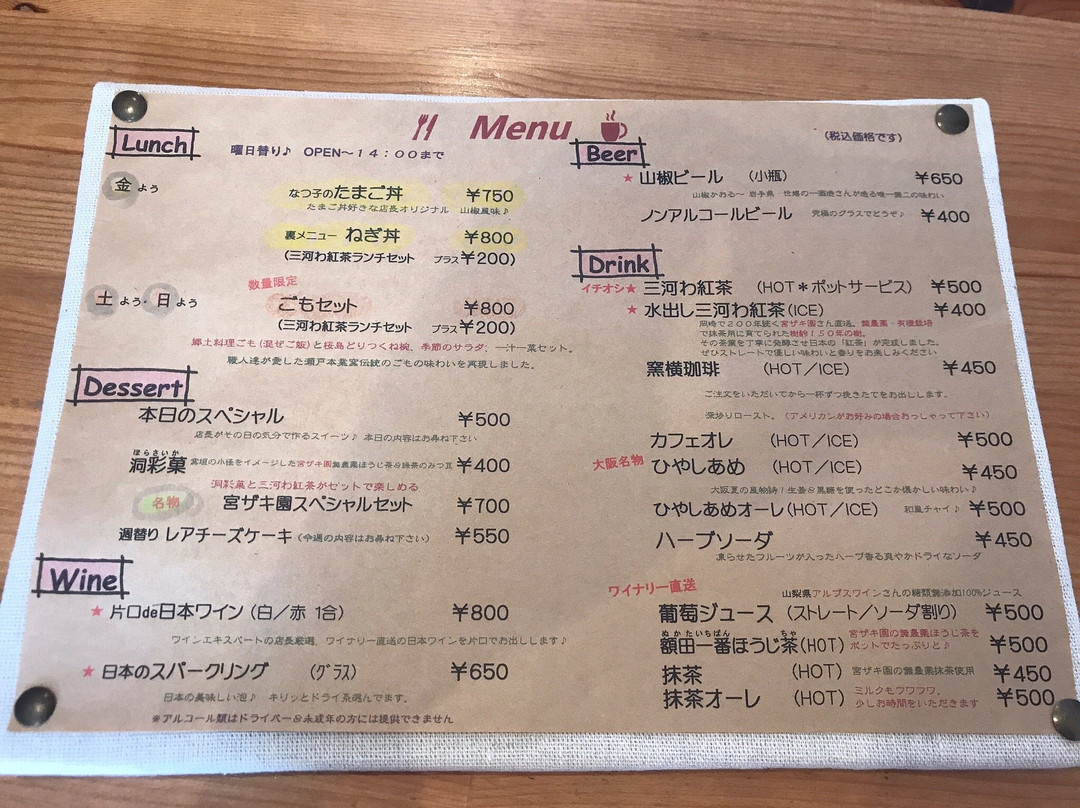 Menu
(税込価格です)
Lunch
曜日替り♪ OPEN～14：00まで
金 よう
なつ子のたまご丼 ¥750
たまご丼好きな店長オリジナル 山椒風味♪
裏メニュー ねぎ丼 ¥800
(三河わ紅茶ランチセット プラス¥200)
土 よう・日 よう
数量限定
ごもセット ¥800
(三河わ紅茶ランチセット プラス¥200)
郷土料理ごも(混ぜご飯)と桜島どりつくね椀、季節のサラダ、一汁一菜セット。
職人達が愛した瀬戸本業窯伝統のごもの味わいを再現しました。
Dessert
本日のスペシャル ¥500
店長がその日の気分で作るスイーツ♪ 本日の内容はお尋ね下さい
ほらさいか
洞彩菓 宮垣の小径をイメージした宮ザキ園無農薬ほうじ茶&緑茶のみつ豆 ¥400
洞彩菓と三河わ紅茶がセットで楽しめる
名物 宮ザキ園スペシャルセット ¥700
週替り レアチーズケーキ (今週の内容はお尋ね下さい) ¥550
Wine
★ 片口de日本ワイン (白／赤 1合) ¥800
ワインエキスパートの店長厳選、ワイナリー直送の日本ワインを片口でお出しします♪
★ 日本のスパークリング (グラス) ¥650
日本の美味しい泡♪ キリッとドライ系選んでます。
※アルコール類はドライバー&未成年の方には提供できません
Beer
★ 山椒ビール (小瓶) ¥650
山椒かおる～ 岩手県 世嬉の一酒造さんが造る唯一無二の味わい
ノンアルコールビール 究極のグラスでどうぞ♪ ¥400
Drink
イチオシ★ 三河わ紅茶 (HOT＊ポットサービス) ¥500
★ 水出し三河わ紅茶(ICE) ¥400
岡崎で200年続く宮ザキ園さん直送。無農薬・有機栽培
で抹茶用に育てられた樹齢150年の樹。
その茶葉を丁寧に発酵させ日本の「紅茶」が完成しました。
ぜひストレートで優しい味わいと香りをお楽しみください
窯横珈琲 (HOT／ICE) ¥450
ご注文をいただいてから一杯ずつ挽きたてをお出しします。
深炒りロースト。(アメリカンがお好みの場合おっしゃって下さい)
カフェオレ (HOT／ICE) ¥500
大阪名物 ひやしあめ (HOT／ICE) ¥450
大阪夏の風物詩！生姜&黒糖を使ったどこか懐かしい味わい♪
ひやしあめオーレ(HOT／ICE) 和風チャイ♪ ¥500
ハーブソーダ ¥450
凍らせたフルーツが入ったハーブ香る爽やかドライなソーダ
ワイナリー直送 山梨県アルプスワインさんの糖類無添加100%ジュース
葡萄ジュース (ストレート／ソーダ割り) ¥500
ぬかたいちばん ちゃ
額田一番ほうじ茶(HOT) 宮ザキ園の無農薬ほうじ茶を ¥500
ポットでたっぷりと♪
抹茶 (HOT) 宮ザキ園の無農薬抹茶使用 ¥450
抹茶オーレ (HOT) ミルクもフワフワ、 ¥500
少しお時間をいただきます